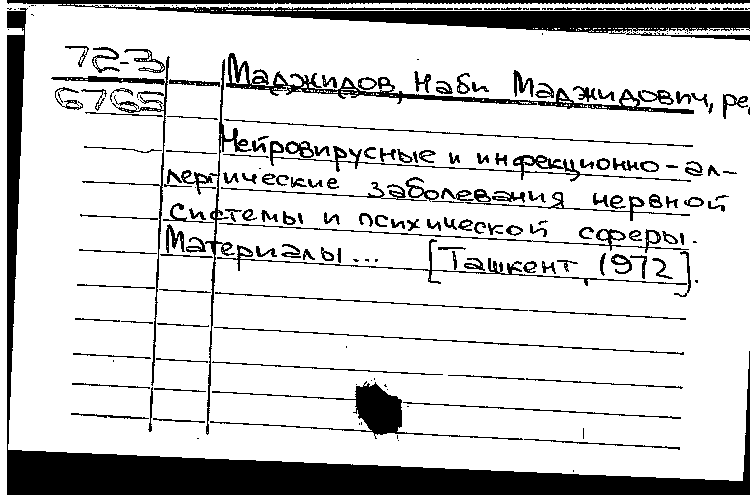 72-3
6765
Маджидов, Наби Маджидович, ред
Нейровирусные и инфекционно-ал-
лергические заболевания нервной
системы и психической сферы.
Материалы... [Ташкент, 1972].